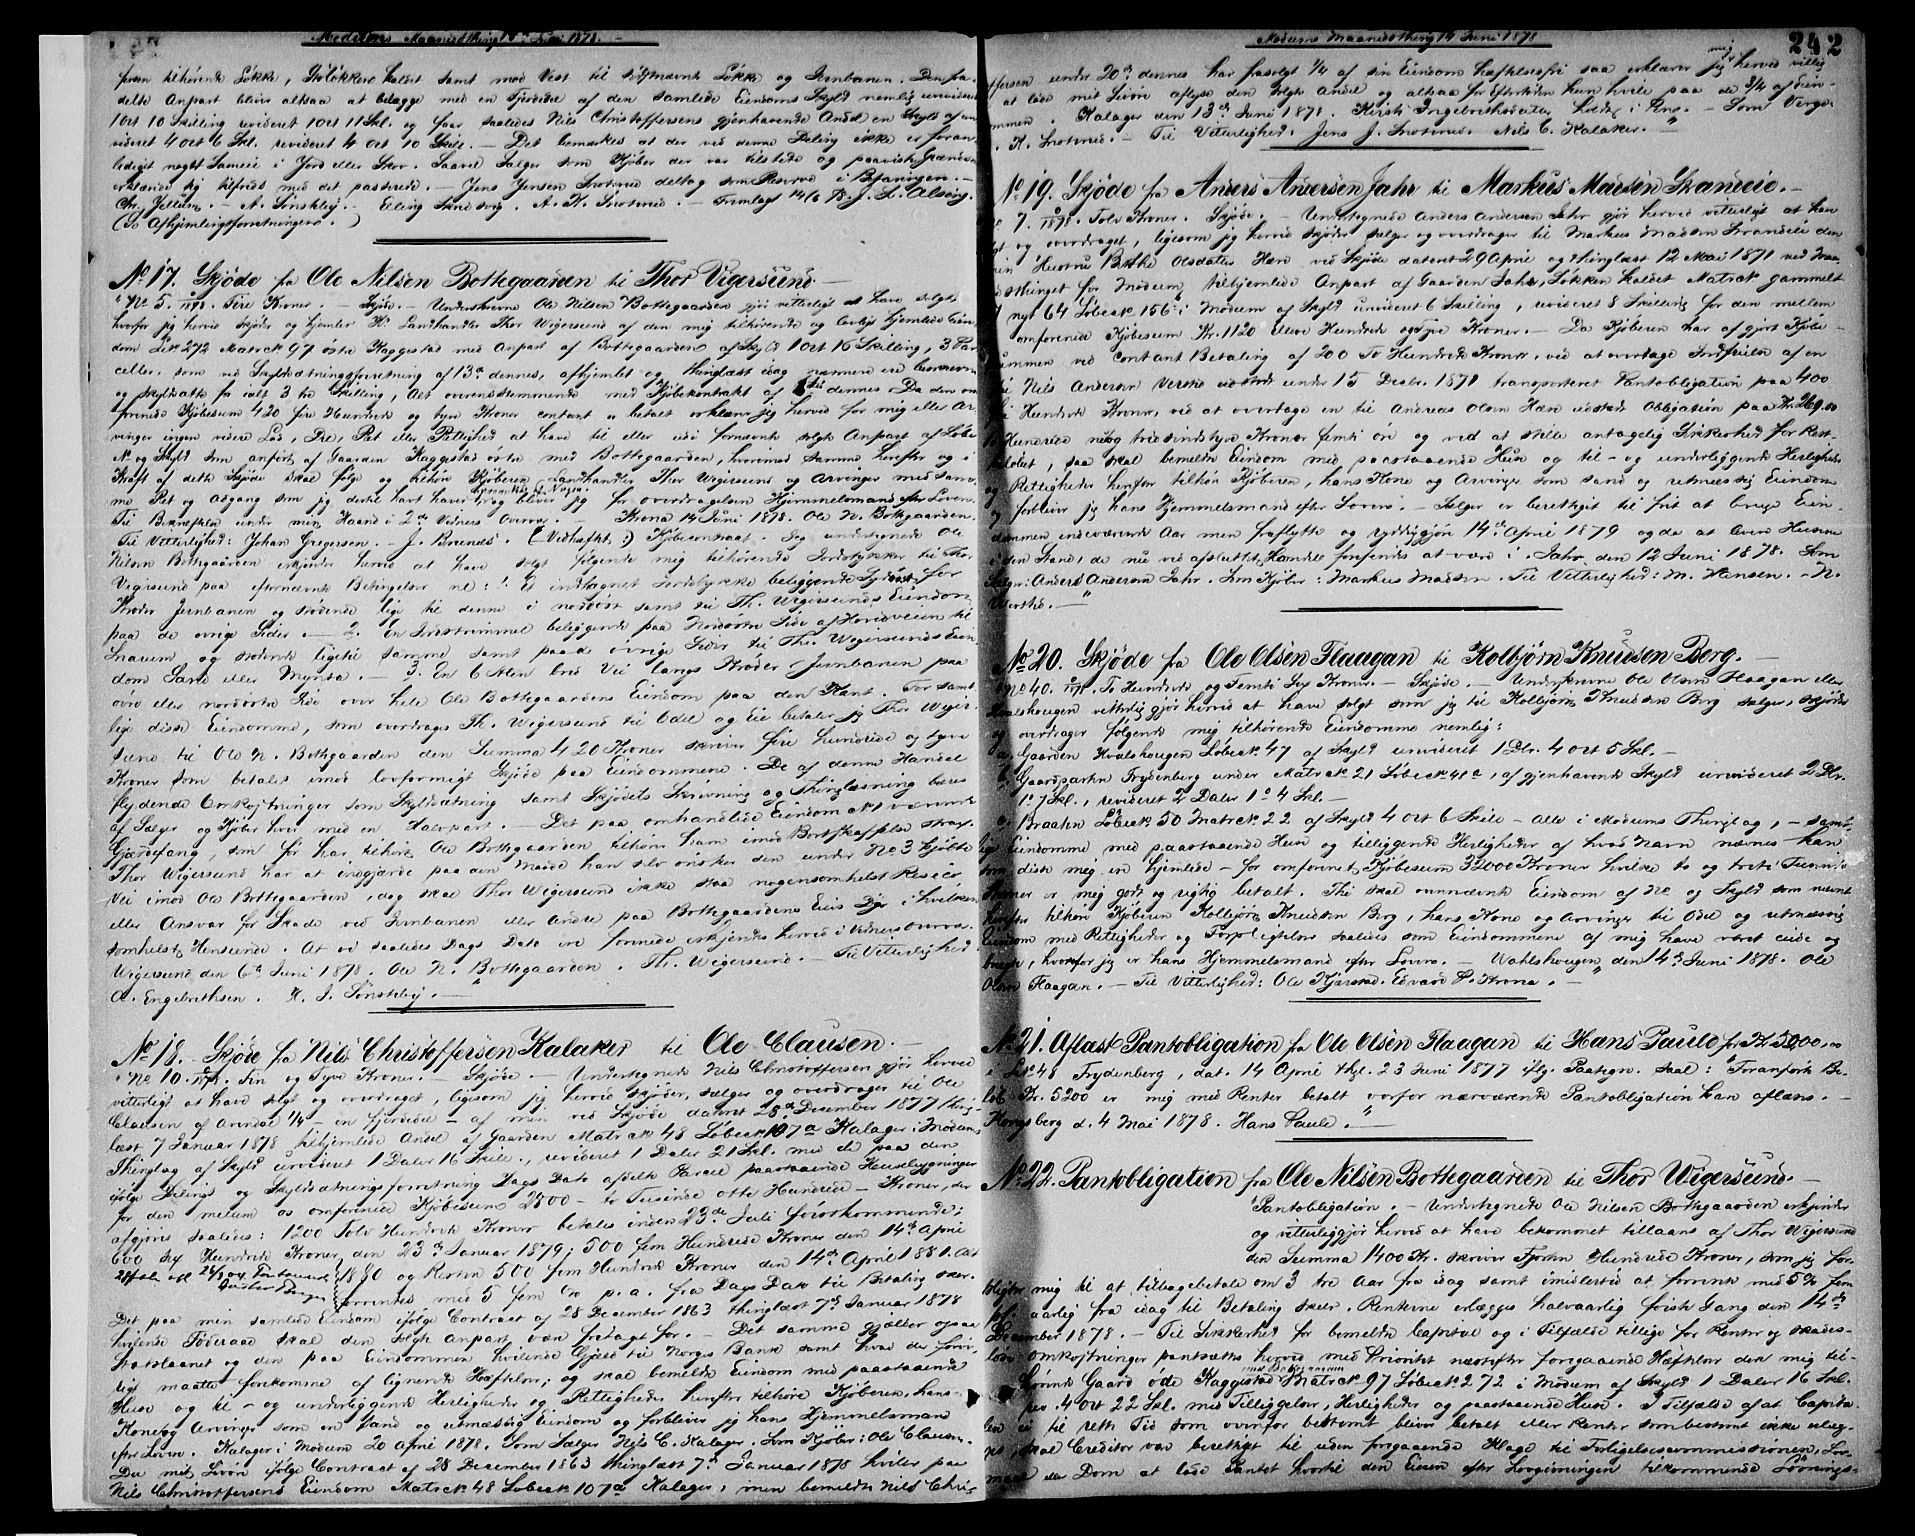 Modums Maanedsthing 14 Juni 1878.
frem tilhørende Løkke, Graløkken kaldet samt mod Vest til sidstnævnte Løkke og Jernbanen. Den fra-
delte Anpart bliver altsaa at belægge med en Fjerdedel af den samlede Eiendoms Skyld nemlig urevideret
1 Ort 10 Skilling revideret 1 Ort 11 Skl. og faar saaledes Nils Christoffersens gjenhavende Andel en Skyld af ure-
videret 4 Ort 6 Skl. revideret 4 Ort 10 Skill. – Det bemærkes at der ved denne Deling ikke er foran-
lediget noget Sameie i Jord eller Skov. Saavel Sælger som Kjøber der var tilstede og paaviste Grændsen
erklærede sig tilfreds med det passerede. – Jens Jensen Snoterud deltog som Reserve i Befaringen. –
Chr. Jellum. – A. Sønsteby. – Elling Sandsvig. A. K. Snoterud. – Fremlagt 14/6 78. J. L. Alsing.
(Se Afhjemlingsforretningen.)
No 17. Skjøde fra Ole Nilsen Bottegaarden til Thor Vigersund –
No 5. 1878. Fire Kroner. Skjøde. – Underskrevne Ole Nilsen Bottegaarden gjør vitterligt at have solgt
hvorfor jeg herved skjøder og hjemler Hr. Landhandler Thor Wigersund af den mig tilhørende og lovlig hjemlede Eien-
dom Løb. 272 Matr. 97 østre Kaggestad med Anpart af Bottegaarden af Skyld 1 Ort 16 Skilling, 3 Par-
celler, som ved Skyldsætningsforretning af 13de dennes, afhjemlet og thinglæst idag nærmere ere benævnte
og skyldsatte for ialt 3 tre Skilling, Alt overensstemmende med Kjøbekontrakt af 6te dennes. Da den om-
forenede Kjøbesum 420 fire Hundrede og tyve Kroner contant er betalt erklærer jeg herved for mig eller Ar-
vinger ingen videre Lod, Del, Ret eller Rettighed at have til eller udi fornævnte solgte Anpart af Løbe-
No og Skyld som anført af Gaarden Kaggestad østre med Bottegaarden, hvorimod samme herefter og i
Kraft af dette Skjøde skal følge og tilhøre Kjøberen Landhandler Thor Wigersund og Arvinger med sam-
me Ret og Adgang som jeg dertil havt haver, og bliver jeg for overdragelsen Hjemmelsmand efter Loven.
Til Bekræftelse under min Haand i 2de Vidners Overvær. – Krona 14 Juni 1878. Ole N. Bottegaarden.
Til Vitterlighed: Johan Gregersen. – J. Brunæs. (Vedhæftet:) Kjøbecontract. Jeg undertegnede Ole
Nilsen Bottegaarden erkjender herved at have solgt følgende mig tilhørende Jordstykker til Thor
Vigersund paa efternævnte Betingelser ne: 1. Et indhegnet Jordstykke beliggende Sydvest for
Krøder Jernbanen og stødende lige til denne i nordøst samt til Th. Wigersunds Eiendom
paa de øvrige Sider. – 2. En Jordstrimmel beliggende paa Nordøstre Side af Hovedveien til
Snarum og stødende ligetil samme samt paa de øvrige Sider til Th. Wigersunds Eien-
dom Sand eller Myrsta. – 3. En 6 Alen bred Vei langs Krøder Jernbanen paa
øvre eller nordøstre Side over hele Ole Bottegaardens Eiendom paa den Kant. For samt-
lige disse Eiendomme, som overdrages Th. Wigersund til Odel og Eie betaler jeg Thor Wiger-
sund til Ole N. Bottegaarden den Summa 420 Kroner skriver fire Hundrede og tyve
Kroner som betalt imod lovformeligt Skjøde paa Eiendommene. De af denne Handel
flydende Omkostninger som Skyldsætning samt Skjødets Skrivning og Thinglæsning bæres
af Sælger og Kjøber hver med en Halvpart. – Det paa omhandlede Eiendom No 1 værende
Gjærdefang, som før har tilhørt Ole Bottegaarden tilhører ham imod Bortskaffelse strax.
Thor Wigersund har at indgjærde paa den Maade han selv ønsker den under No 3 kjøbte
Vei imod Ole Bottegaarden, dog skal Thor Wigersund ikke staa nogensomhelst Risico
eller Ansvar for Skade ved Jernbanen eller andre paa Bottegaardens Eiers Dyr i hvilken
somhelst Henseende. At vi saaledes Dags Dato ere forenede erkjendes herved i Vidners overvær.
Wigersund den 6te Juni 1878. Ole N. Bottegaarden. Th. Wigersund. – Til Vitterlighed
A. Engebrethsen. K. J. Sønsteby. –
No 18. Skjøde fra Nils Christoffersen Kalager til Ole Clausen. –
No 10. 1878. Fem og Tyve Kroner. – Skjøde. – Undertegnede Nils Christoffersen gjør herved
vitterligt at have solgt og overdraget, ligesom jeg herved skjøder, sælger og overdrager til Ole
Clausen af Arendal 1/4 – en fjerdedel – af min ved Skjøde dateret 28de December 1877 thing-
læst 7 Januar 1878 tilhjemlede Andel af Gaarden Matr. 48 Løbe. 107a Kalager i Modums
Thinglag af Skyld urevideret 1 Daler 16 Skill., revideret 1 Daler 21 Skl. med de paa den
ifølge Delings og Skyldsætningsforretning Dags Dato afdelte Parcel paastaaende Husebygninger
for den mellem os omforenede Kjøbesum 2800 – to Tusinde otte Hundrede – Kroner, der
afgjøres saaledes: 1200 Tolv Hundrede Kroner betales inden 23de Juli førstkommende;
600 sex Hundrede Kroner den 23de Januar 1879; 500 fem Hundrede Kroner den 14de April
1880 og Resten 500 fem Hundrede Kroner den 14de April 1881. Alt
forrentes med 5 fem % p.a. fra Dags Dato til Betaling sker.
Det paa min samlede Eiendom ifølge Contract af 28 December 1863 thinglæst 7de Januar 1878
hvilende Føderaad skal den solgte Anpart være fritaget for. – Det samme gjælder ogsaa
Statslaanet og den paa Eiendommen hvilende Gjæld til Norges Bank samt hvad der forøv-
rigt maatte forekomme af lignende Hæftelser; og skal bemeldte Eiendom med paastaaende
Huse og til – og underliggende Herligheder og Rettigheder herefter tilhøre Kjøberen, hans
Kone og Arvinger som en sand og retmæssig Eiendom og forbliver jeg hans Hjemmelsmand
efter Loven. Kalager i Modum 20 April 1878. Som Sælger Nils C. Kalager. Som Kjøber: Ole Clausen.
Da mit Livøre ifølge Contract af 28 December 1863 thinglæst 7de Januar 1878 hviler paa
Nils Christoffersens Eiendom Matr. 48 Løbe. 107a Kalager, men bemeldte Nils Chri-
Modums Maanedsthing 14 Juni 1878
242
stoffersen under 20de dennes har frasolgt 1/4 af sin Eiendom hæftelsesfri saa erklærer jeg mig herved villig
at lade mit Livøre aflyse den solgte Andel og altsaa for Eftertiden kun hvile paa de 3/4 af Eien-
dommen. Kalager den 13de Juni 1878. Kirsti Ingebrethsdatter Leder i Pen. – Som Verge:
A. K. Snoterud. – Til Vitterlighed: Jens J. Snoterud. Nils C. Kalaker. –
No 19. Skjøde fra Anders Andersen Jahr til Markus Madsen Grandelie. –
No 7. 1878. Tolv Kroner. Skjøde. – Undertegnede Anders Andersen Jahr gjør herved vitterligt at have
solgt og overdraget, ligesom jeg herved skjøder sælger og overdrager til Markus Madsen Grandelie den
min Hustru Berthe Olsdatter Hære ved Skjøde dateret 29 April og thinglæst 12 Mai 1871 ved Maa-
nedsthinget for Modum tilhjemlede Anpart af Gaarden Jahr, Løkken kaldet Matr. gammelt
nyt 64 Løbe. 156 i Modum af Skyld urevideret 6 Skilling, revideret 8 Skilling for den mellem
os omforenede Kjøbesum Kr. 1120 Elleve Hundrede og tyve Kroner. – Da Kjøberen har afgjort Kjøbe-
summen ved contant Betaling af 200 To Hundrede Kroner, ved at overdage Indfrielse af en
til Nils Andersen Verske udstedt under 15 Decbr. 1871 transporteret Pantobligation paa 400
fire Hundrede Kroner, ved at overdage en til Andreas Olsen Hære udstedt Obligation paa Kr. 269.50
to Hundrede nitog tresindstyve Kroner femti Øre og ved at stille antagelig Sikkerhed for Rest-
beløbet, saa skal bemeldte Eiendom med paastaaende Huse og til- og underliggende Herligheder
og Rettigheder herefter tilhøre Kjøberen, hans Kone og Arvinger som sand og retmæssig Eiendom
og forbliver jeg hans Hjemmelsmand efter Loven. – Sælger er berettiget til frit at bruge Eien-
dommen indeværende Aar men fraflytte og ryddiggjøre 14de April 1879 og da at levere Husene
i den Stand, de nu ved afsluttet Handel forefindes at være i. Jahr den 12 Juni 1878. Som
Sælger: Anders Andersen Jahr. Som Kjøber: Markus Madsen. Til Vitterlighed: M. Hansen. – N.
Verske. –
No 20. Skjøde fra Ole Olsen Flaagan til Kolbjørn Knudsen Berg. –
No 40. 1878. To Hundrede og Femti Sex Kroner. – Skjøde. – Underskrevne Ole Olsen Flaagan eller
Hvalshougen vitterliggjør herved at have solgt som jeg til Kolbjørn Knudsen Berg sælger, skjøder
og overdrager følgende mig tilhørende Eiendomme nemlig:
a. Gaarden Hvalshougen Løbe. 47 af Skyld urevideret 1 Dlr. 4 Ort 5 Skl. –
b. Gaardparten Frydenberg under Matr. 21 Løbe. 41a, af gjenhavende Skyld urevideret 2 Dlr.
1 o 7 Skl., revideret 2 Daler 1 o 4 Skl. –
c. Braaten Løbe. 50 Matr. 22 af Skyld 4 Ort 6 Skill – alle i Modums Thinglag, – samt-
lige Eiendomme med paastaaende Huse og tilliggende Herligheder af hvad Navn nævnes kan
som disse mig ere hjemlede – for omforenet Kjøbesum 32000 Kroner hvilke to og treti Tusinde
Kroner er mig godt og rigtig betalt. Thi skal ovennævnte Eiendom af No og Skyld som nævnt
herefter tilhøre Kjøberen Kolbjørn Knudsen Berg, hans Kone og Arvinger til Odel og retmæssig
Eiendom med Rettigheder og Forpligtelser saaledes som Eiendommene af mig have været eiede og
brugte, hvorfor jeg er hans Hjemmelsmand efter Loven. – Wahlshougen den 14de Juni 1878. Ole
Olsen Flaagan. – Til Vitterlighed: Ole Kjærstad. Edvard P. Krona. –
No 21. Aflæst Pantobligation fra Ole Olsen Flaagan til Hans Paule for Kr. 5200,00
i L. 48 Frydenberg, dat. 14 April thgl. 23 Juni 1877 iflg. Paategn. saal: "Foranførte Be-
løb Kr. 5200 er mig med Renter betalt hvorfor nærværende Pantobligation kan aflæses. –
Kongsberg d. 4 Mai 1878. Hans Paule." –
No 22. Pantobligation fra Ole Nilsen Bottegaarden til Thor Wigersund. –
"Pantobligation. – Undertegnede Ole Nilsen Bottegaarden erkjender
og vitterliggjør herved at have bekommet tillaans af Thor Wigersund
den Summa 1400 Kr. skriver Fjorten Hundrede Kroner, som jeg for-
pligter mig til at tilbagebetale om 3 tre Aar fra idag samt imidlertid at forrente med 5 % fem
pCt aarlig fra idag til Betaling skeer. Renterne erlægges halvaarlig første Gang den 14de
December 1878. – Til Sikkerhed for bemeldte Capital og i Tilfælde tillige for Renter og skades-
løse omkostninger pantsættes herved med Prioritet næstefter foregaaende Hæftelser den mig til-
hørende Gaard øde Kaggestad med Bottegaarden Matr. 97 Løbe. 272 i Modum af Skyld 1 Daler 16 Skl.
rev. 4 Ort 22 Skl. med Tilliggelser, Herligheder og paastaaende Huse. I Tilfælde af at Capita-
len ei til rette Tid som ovenfor bestemt bliver betalt eller Renter som bestemt ikke erlæg-
ges, skal Creditor være berettiget til uden foregaaende Klage til Forligelsescommissionen, Lov-
maal eller Dom at lade Pantet hvortil den Eiesen efter Lovgivningen tilkommende Løsnings-